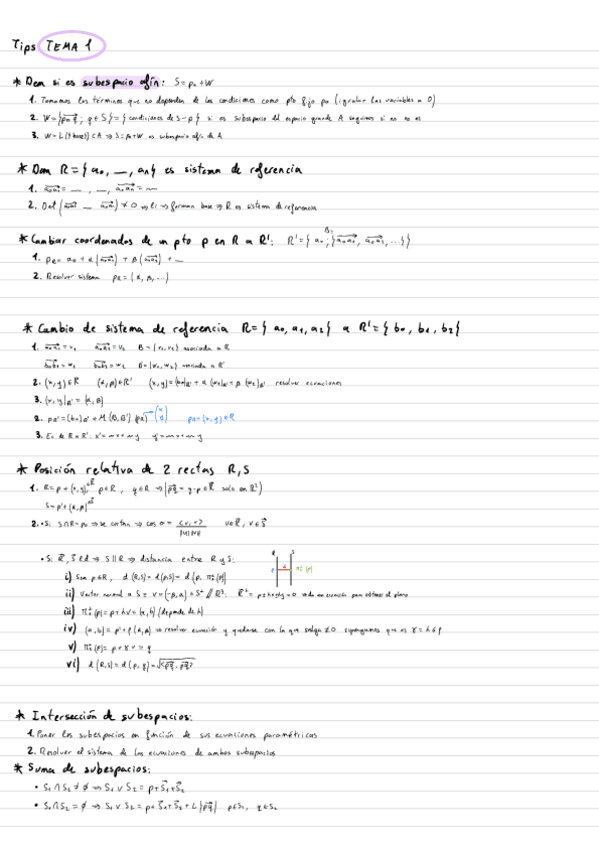 Tips TEMA 1
* Dem si es subespacio afín: S = p₀ + W
1. Tomamos los términos que no dependen de las condiciones como pto fijo p₀ (igualar las variables a 0)
2. W = {p₀q ; q ∈ S} = {condiciones de S - p} si es subespacio del espacio grande A seguimos si no no es
3. W = L({base}) ⊂ A ⇒ S = p₀ + W es subespacio afín de A
* Dem R = { a₀, __, aₙ} es sistema de referencia
1. a₀a₁ = __, __, a₀aₙ = __
2. Det (a₀a₁ __ a₀aₙ) ≠ 0 ⇒ li ⇒ forman base ⇒ R es sistema de referencia
* Cambiar coordenadas de un pto p en R a R': R' = { a₀ ; { a₀a₁, a₀a₂, ...}}
1. p_R = a₀ + α (a₀a₁) + β (a₀a₂) + __
2. Resolver sistema p_R = (α, β, ...)
* Cambio de sistema de referencia R = { a₀, a₁, a₂ } a R' = { b₀, b₁, b₂ }
1. a₀a₁ = v₁ a₀a₂ = v₂ B = {v₁, v₂} asociada a R
b₀b₁ = w₁ b₀b₂ = w₂ B' = {w₁, w₂} asociada a R'
2. (x, y) ∈ R (α, β) ∈ R' resolver ecuaciones
3. (x, y)_R' = (α, β)
* Posición relativa de 2 rectas R, S
2. • Si S ∩ R = p₀ ⇒ se cortan ⇒ cos α =
• Si R, S ld ⇒ S || R ⇒ distancia entre R y S:
i) Sea p ∈ R, d (R,S) = d (p,S) = d (p,
ii) Vector normal a S
iii) = p + λv = (a, b) (depende de λ)
iv) (a, b) = p' + β (α, β) ⇒ resolver ecuación y quedarse con la que salga ≠ 0 supongamos que es
v)
vi) d (R,S) = d (p, q) = √<pq, pq>
* Intersección de subespacios:
1. Poner los subespacios en función de sus ecuaciones paramétricas
2. Resolver el sistema de las ecuaciones de ambos subespacios
* Suma de subespacios:
• S₁ ∩ S₂ ≠ ∅ ⇒ S₁ ∨ S₂ = p + S₁ + S₂
• S₁ ∩ S₂ = ∅ ⇒ S₁ ∨ S₂ = p + S₁ + S₂ + L {pq} p ∈ S₁, q ∈ S₂